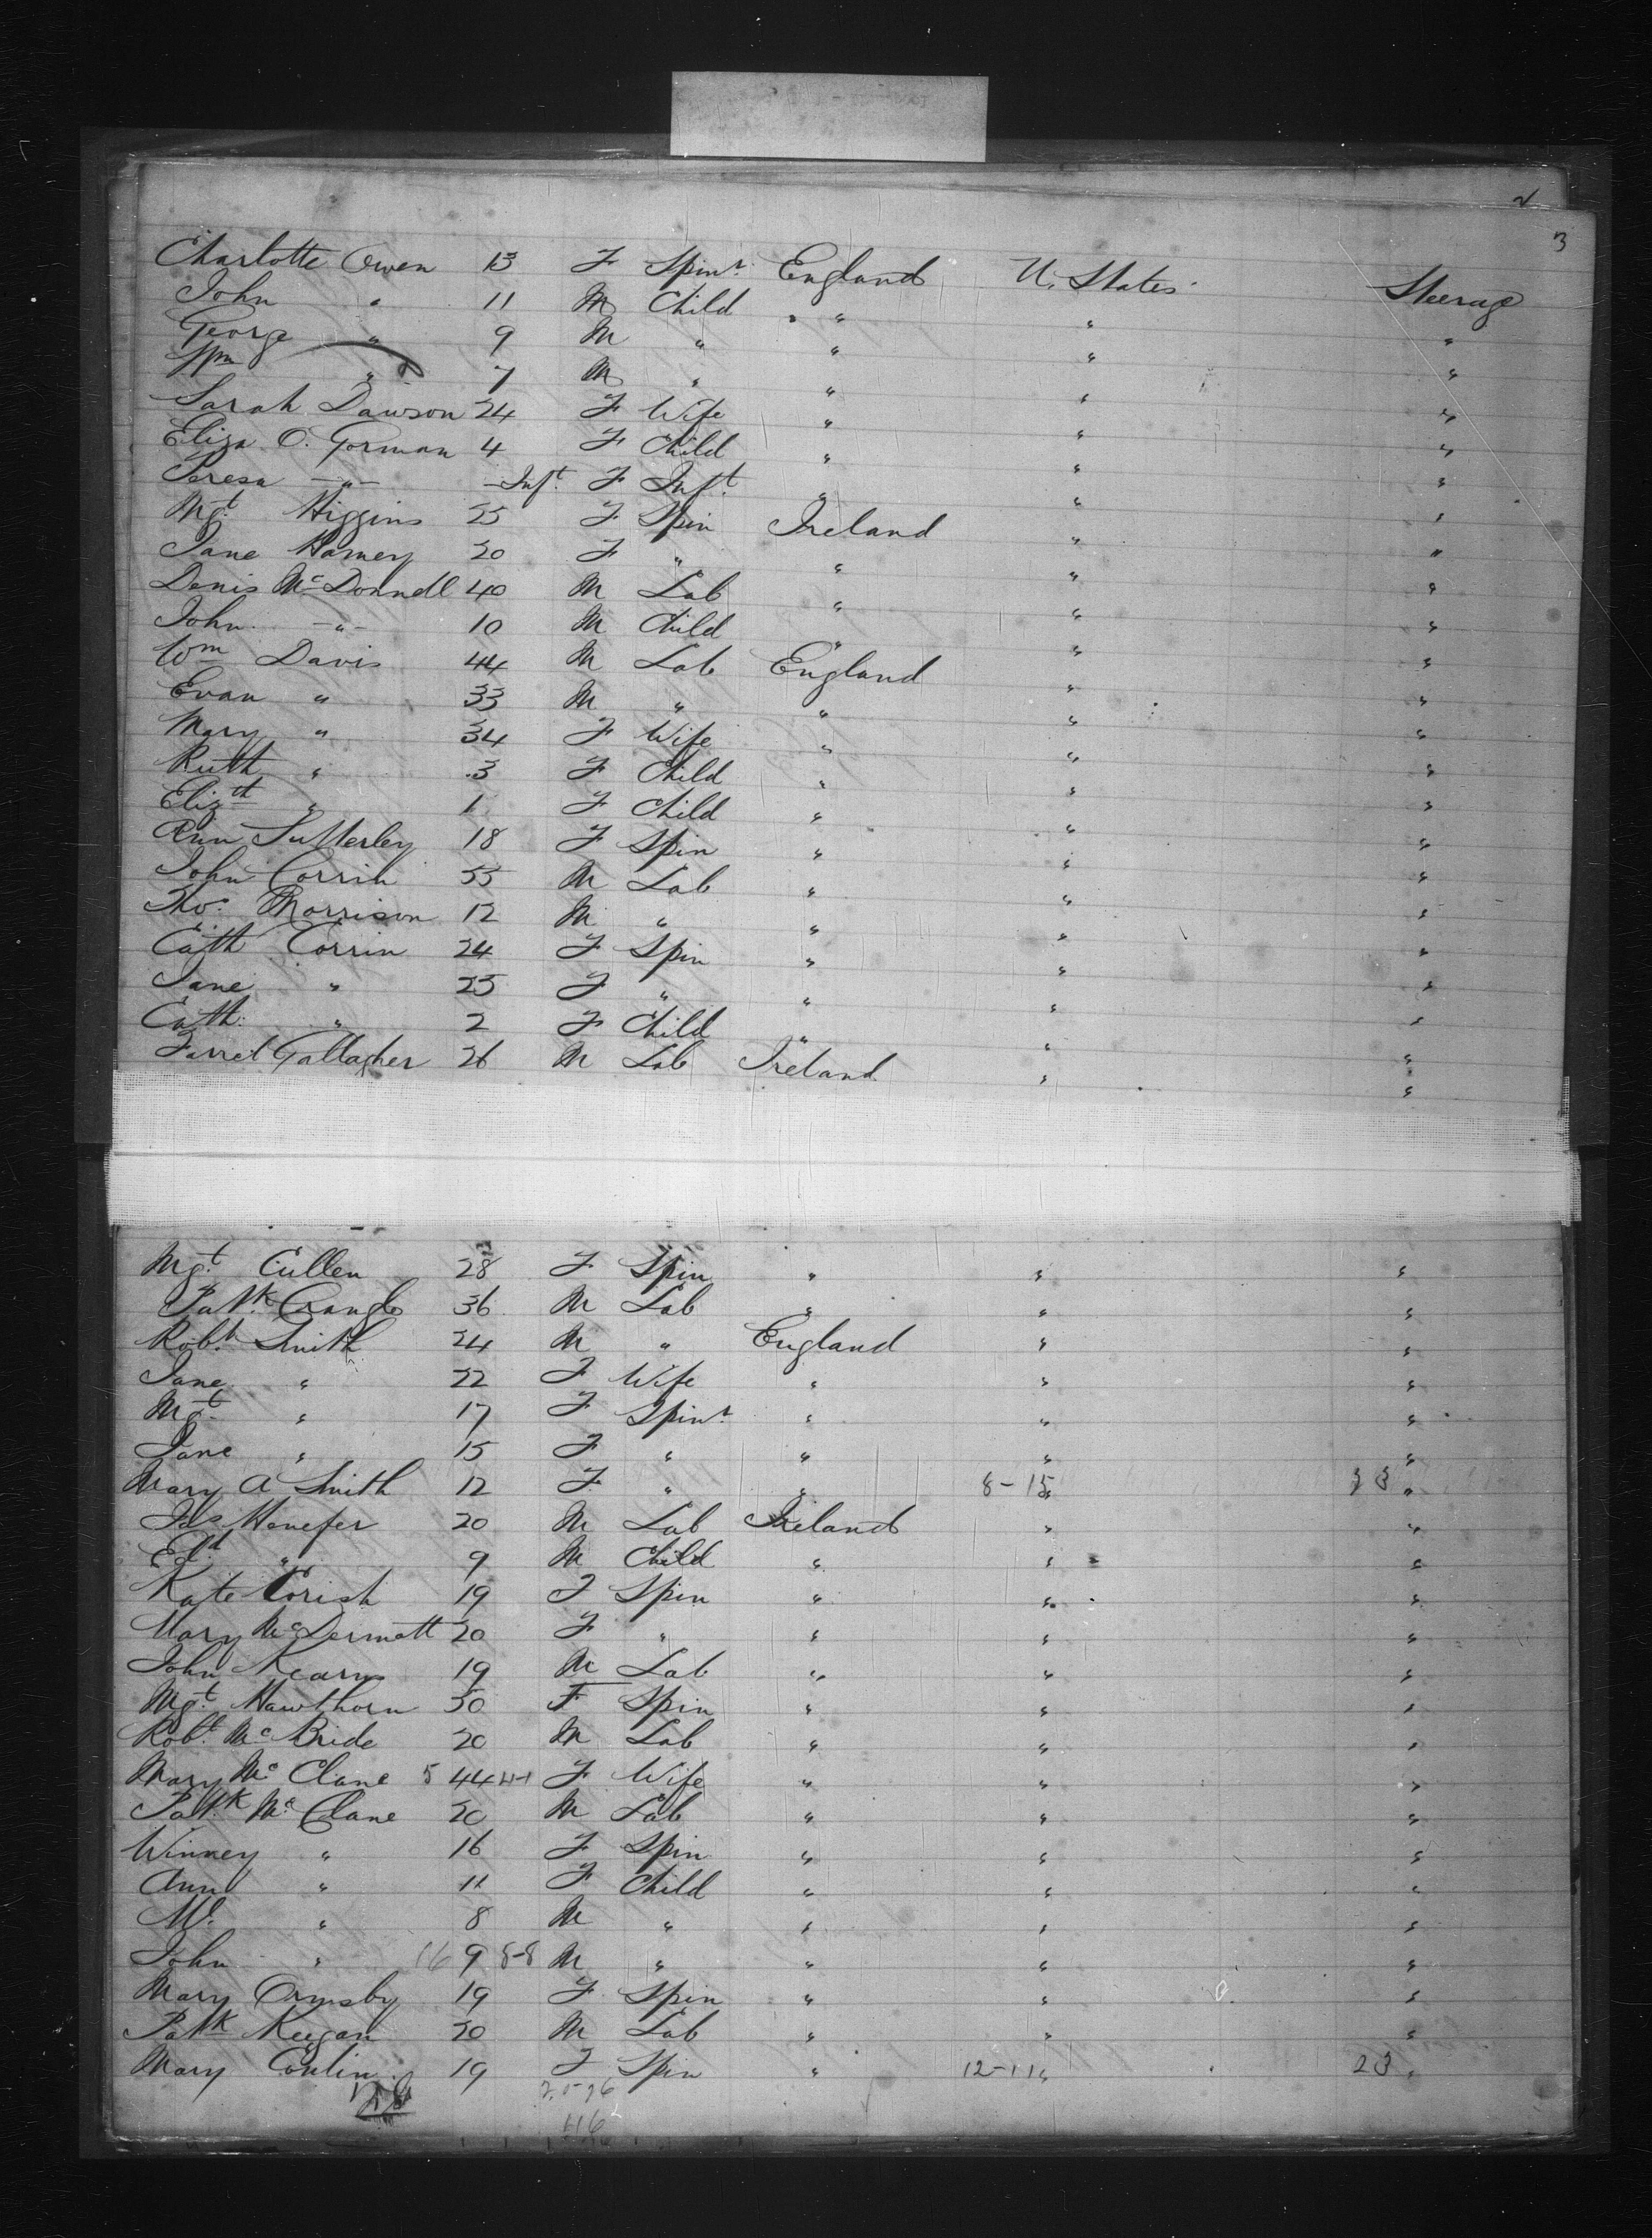 2
3
Charlotte Owen 13 F Spinr England U. States Steerage
John " 11 M Child " " "
George " 9 M " " " "
Wm " 7 M " " " "
Sarah Dawson 24 F Wife " " "
Eliza O. Gorman 4 F Child " " "
Teresa -"- Inft F Inft " " "
Mgt Higgins 25 F Spin Ireland " "
Jane Harney 20 F " " " "
Denis McDonnell 40 M Lab " " "
John -"- 10 M Child " " "
Wm Davis 44 M Lab England " "
Evan " 33 M " " " "
Mary " 34 F Wife " " "
Ruth " 3 F Child " " "
Elizth " 1 F Child " " "
Ann Sutterley 18 F Spin " " "
John Corrin 55 M Lab " " "
Thos Morrison 12 M " " " "
Cath Corrin 24 F Spin " " "
Jane " 25 F " " " "
Cath " 2 F Child " " "
Farrel Gallagher 26 M Lab Ireland " "
Mgt Cullen 28 F Spin " " "
Patk Crangle 36 M Lab " " "
Robt Smith 24 M " England " "
Jane " 22 F Wife " " "
Mgt " 17 F Spinr " " "
Jane " 15 F " " " "
Mary A Smith 12 F " " 8-15 " 23 "
Jas Henefer 20 M Lab Ireland " "
Edd " 9 M Child " " "
Kate Corish 19 F Spin " " "
Mary McDermott 20 F " " " "
John Kearns 19 M Lab " " "
Mgt Hawthorn 50 F Spin " " "
Robt McBride 20 M Lab " " "
Mary McClane 5 44 21-1 F Wife " " "
Patk McClane 20 M Lab " " "
Winney " 16 F Spin " " "
Ann " 11 F Child " " "
Ml " 8 M " " " "
John " 16 9 8-8 M " " " "
Mary Ormsby 19 F Spin " " "
Patk Keegan 20 M Lab " " "
Mary Conlin 19 F Spin " 12-11 " 23 "
116